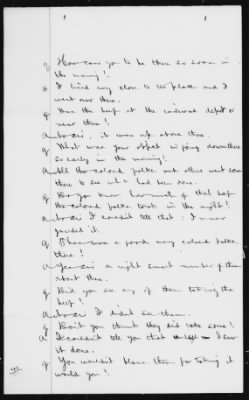 Q How came you to be there so soon in
the morning?
A I lived very close to the place and I
went over there.
Q Was the beef at the railroad depot or
near there?
A No sir, it was up above there.
Q What was your object in going down there
so early in the morning?
A All the colored folks and others went down
there to see what had been done.
Q Do you know how much of that beef
the colored folks took in the night?
A No sir I couldn't tell that; I never
guarded it.
Q There were a good many colored folks
there?
A Yes sir a right smart number of them
about there.
Q Did you see any of them taking the
beef?
A No sir I didn't see them.
Q Don't you think they did take some?
A I couldn't tell you that I saw
it done.
Q You wouldn't blame them for taking it
would you?